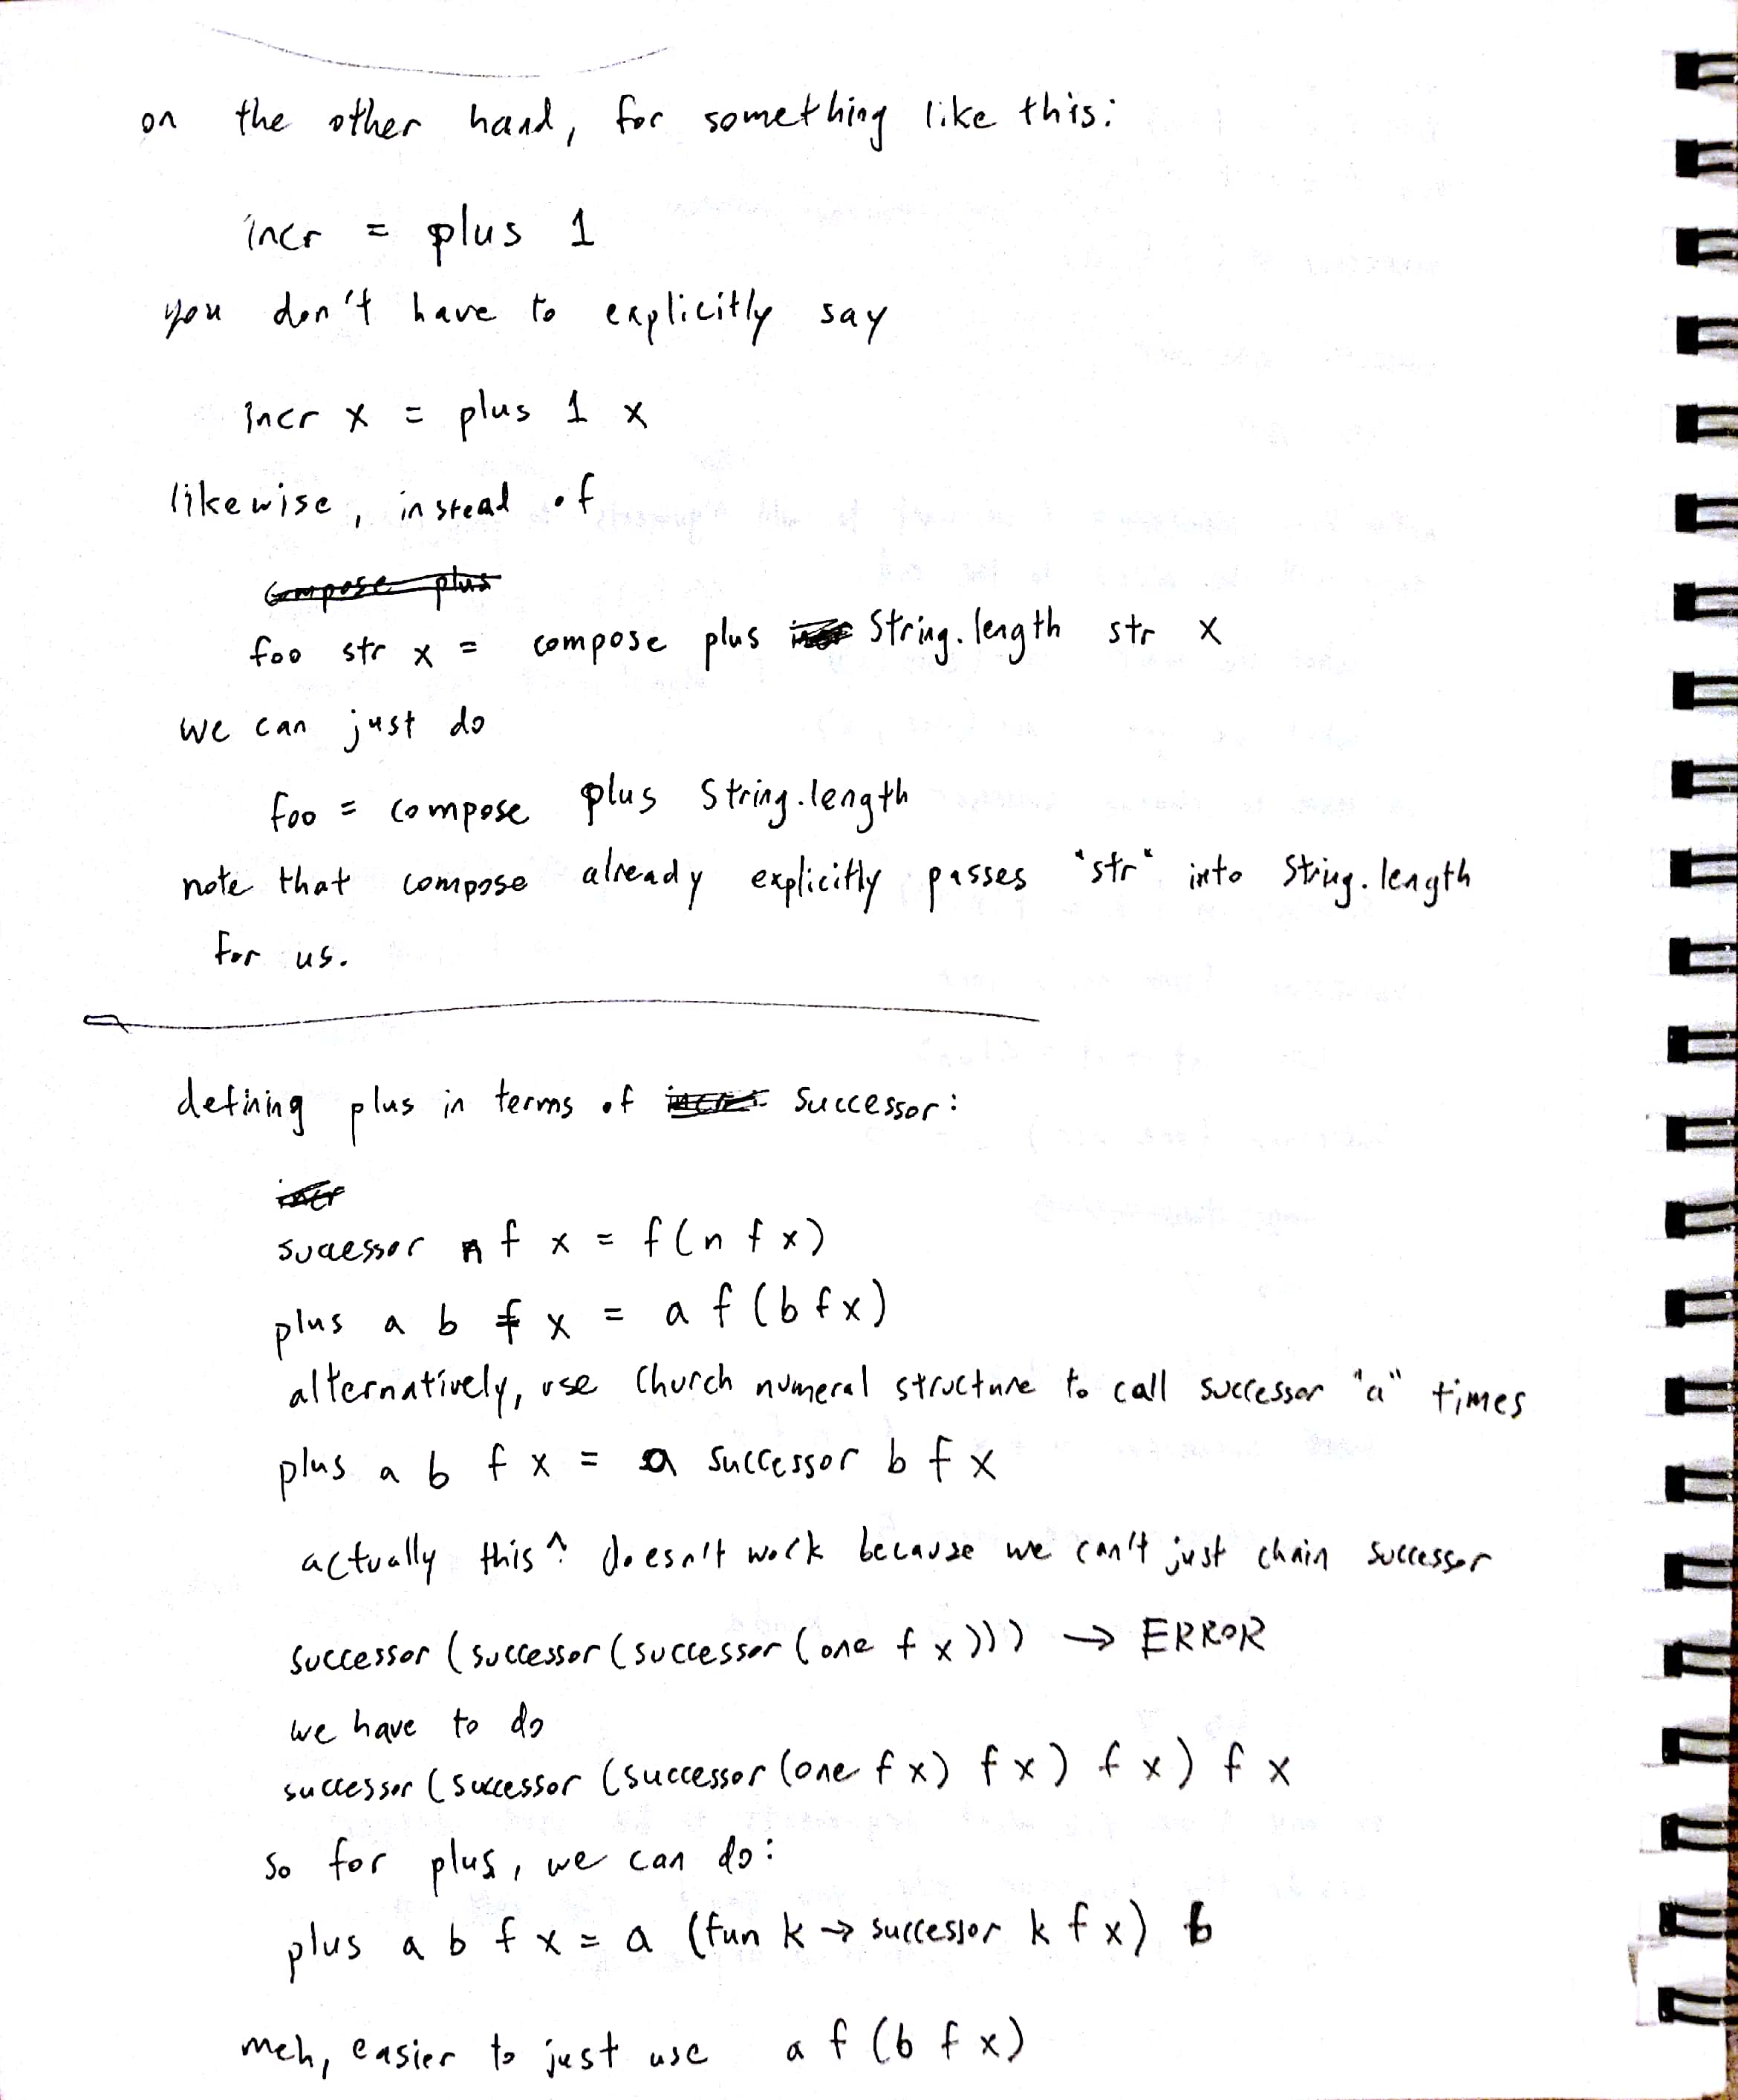 on the other hand, for something like this:
incr = plus 1
you don't have to explicitly say
incr x = plus 1 x
likewise, instead of
compose plus
foo str x = compose plus String.length str x
we can just do
foo = compose plus String.length
note that compose already explicitly passes "str" into String.length
for us.
defining plus in terms of successor:
incr
successor n f x = f(n f x)
plus a b f x = a f (b f x)
alternatively, use Church numeral structure to call successor "a" times
plus a b f x = a successor b f x
actually this ^ doesn't work because we can't just chain successor
successor (successor (successor (one f x))) → ERROR
we have to do
successor (successor (successor (one f x) f x) f x) f x
so for plus, we can do:
plus a b f x = a (fun k → successor k f x) b
meh, easier to just use a f (b f x)